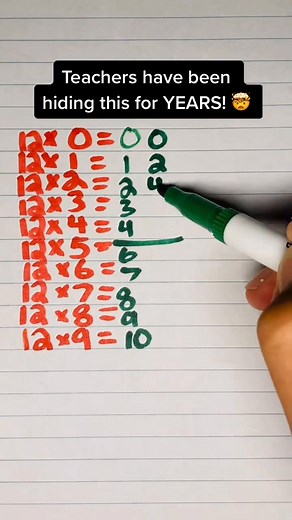 Teachers have been
hiding this for YEARS! 🤯
12×0=0 0
12×1=1 2
12×2=2 4
12×3=3
12×4=4
12×5=
12×6=6
12×7=7
12×8=8
12×9=9
10